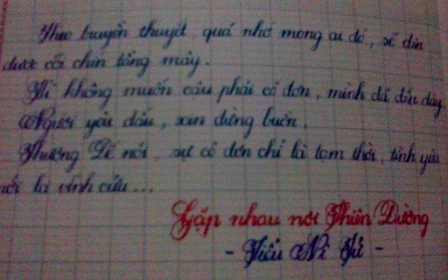 Theo truyền thuyết, quá nhớ mong ai đó, sẽ đến
được cõi chín tầng mây.
Vì không muốn cậu phải cô đơn, mình đã đến đây
Người yêu dấu, xin đừng buồn,
Thượng Đế nói, sự cô đơn chỉ là tạm thời, tình yêu
mới là vĩnh cửu...
Gặp nhau nơi Thiên Đường
- Tiểu Ni Tử -